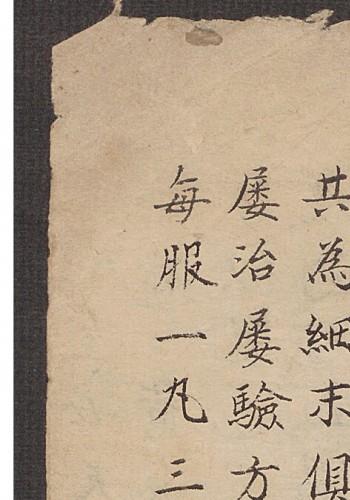 共為細末俱
屡治屡驗方
每服一丸三